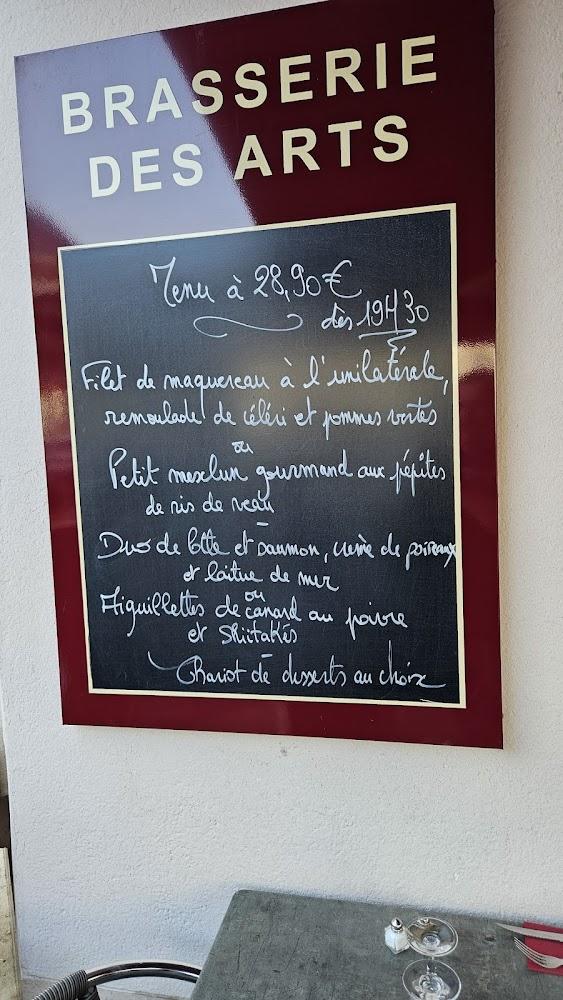 BRASSERIE
DES ARTS
Menu à 28,90€
dès 19H30
Filet de maquereau à l'unilatérale,
remoulade de céléri et pommes vertes
ou
Petit mesclun gourmand aux pépites
de ris de veau
Duo de lotte et saumon, crème de poireaux
et laitue de mer
ou
Aiguillettes de canard au poivre
et Shiitakés
Chariot de desserts au choix